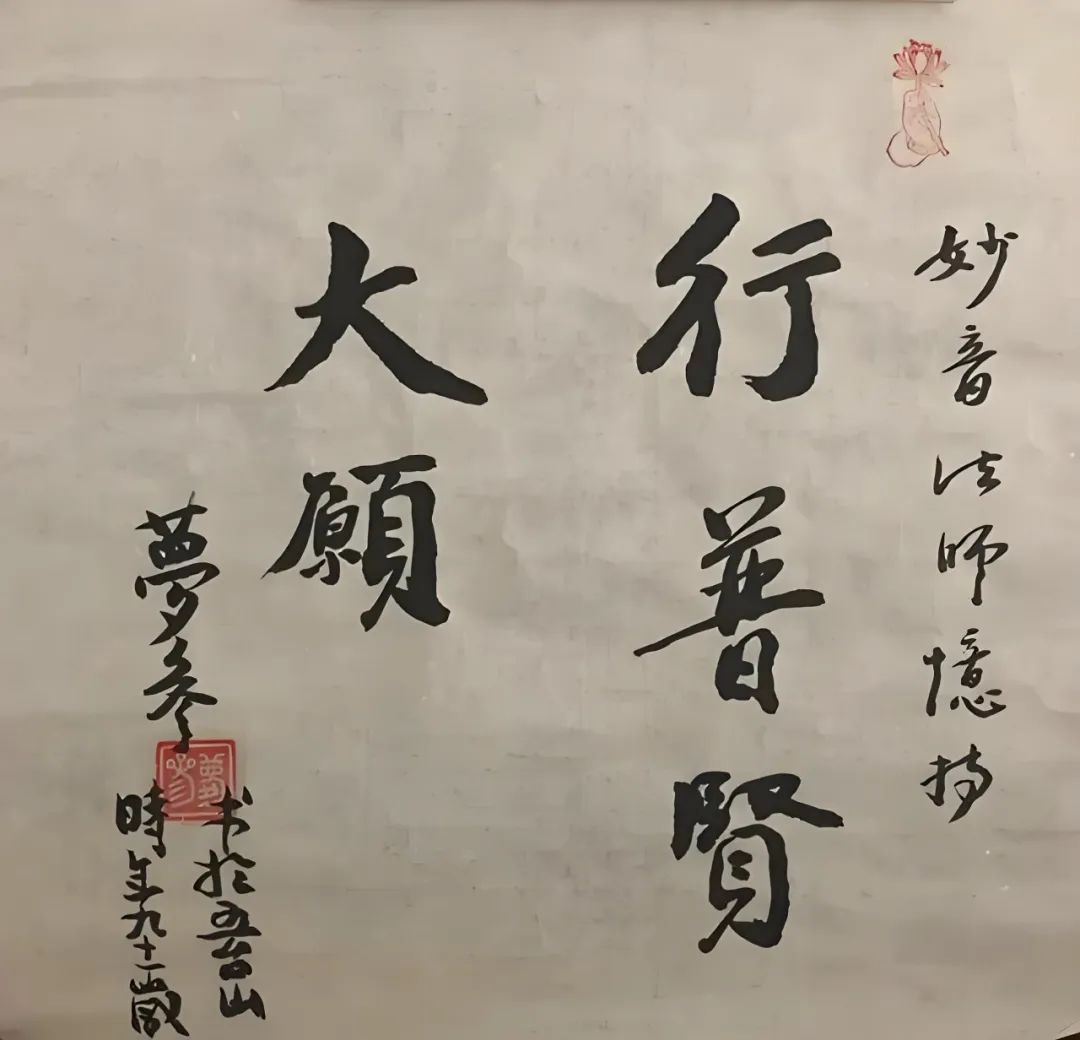 妙音法师憶持
行普賢
大願
夢參
夢參
书於五台山
時年九十一歲